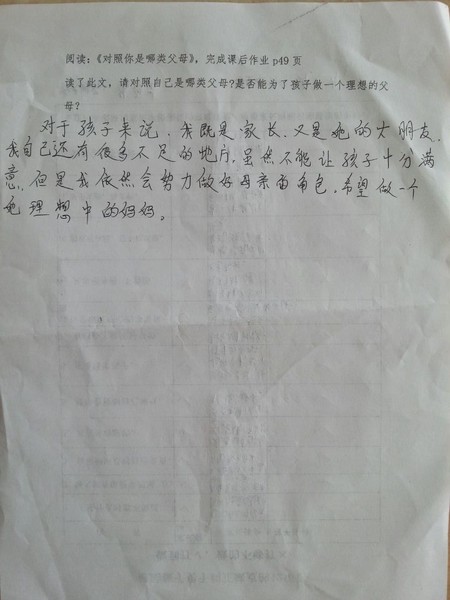 阅读：《对照你是哪类父母》，完成课后作业 p49 页
读了此文，请对照自己是哪类父母?是否能为了孩子做一个理想的父
母？
对于孩子来说，我既是家长，又是她的大朋友，
我自己还有很多不足的地方，虽然不能让孩子十分满
意，但是我依然会努力做好母亲的角色，希望做一个
她理想中的妈妈。